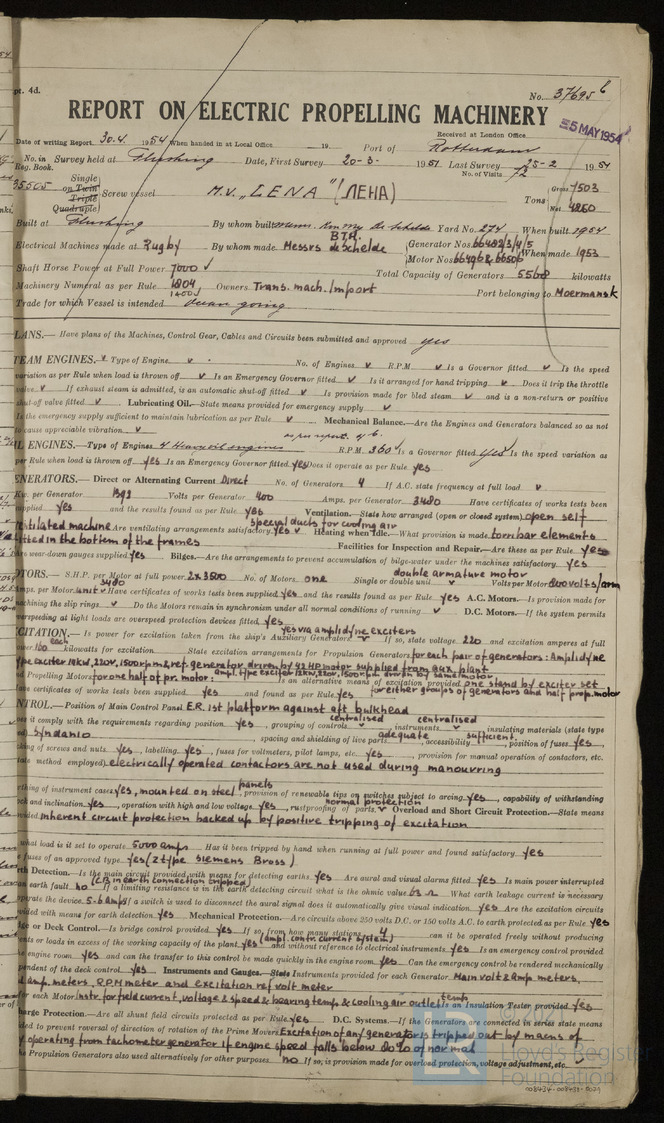 pt. 4d.
No. 37695 b
REPORT ON ELECTRIC PROPELLING MACHINERY
Received at London Office
5 MAY 1954
Date of writing Report 30.4 1954 When handed in at Local Office 19 Port of Rotterdam
No. in Survey held at Flushing Date, First Survey 20-3- 1951 Last Survey 25-2 1954
Reg. Book. No. of Visits 72
35505 Single on Twin Triple Quadruple Screw vessel M.V. "LENA" (ЛЕНА) Tons Gross 7503 Net 4260
Built at Flushing By whom built Messrs. Kon My De Schelde Yard No. 274 When built 1954
Electrical Machines made at Rugby By whom made Messrs B.T.H. de Schelde Generator Nos. 66482/3/4/5 Motor Nos. When made 1953
Shaft Horse Power at Full Power 7000 Total Capacity of Generators 5568 kilowatts
Machinery Numeral as per Rule 1804 1400 Owners Trans. mach. Import Port belonging to Moermansk
Trade for which Vessel is intended Ocean going
LANS.— Have plans of the Machines, Control Gear, Cables and Circuits been submitted and approved yes
TEAM ENGINES. Type of Engine No. of Engines R.P.M. Is a Governor fitted Is the speed
variation as per Rule when load is thrown off Is an Emergency Governor fitted Is it arranged for hand tripping Does it trip the throttle
If exhaust steam is admitted, is an automatic shut-off fitted Is provision made for bled steam and is a non-return or positive
shut-off valve fitted Lubricating Oil.—State means provided for emergency supply
Is the emergency supply sufficient to maintain lubrication as per Rule Mechanical Balance.—Are the Engines and Generators balanced so as not
to cause appreciable vibration as per report. 4 b.
IL ENGINES.—Type of Engines 4 Heavy oil engines R.P.M. 360 Is a Governor fitted yes Is the speed variation as
per Rule when load is thrown off yes Is an Emergency Governor fitted yes Does it operate as per Rule yes
ENERATORS.— Direct or Alternating Current Direct No. of Generators 4 If A.C. state frequency at full load
Kw. per Generator 1392 Volts per Generator 400 Amps. per Generator 3480 Have certificates of works tests been
supplied yes and the results found as per Rule yes Ventilation.—State how arranged (open or closed system) open self
ventilated machine Are ventilating arrangements satisfactory yes special ducts for cooling air Heating when Idle.—What provision is made torribar elements
fitted in the bottem of the frames Facilities for Inspection and Repair.—Are these as per Rule yes
Are wear-down gauges supplied yes Bilges.—Are the arrangements to prevent accumulation of bilge-water under the machines satisfactory yes
OTORS.— S.H.P. per Motor at full power 2x3500 No. of Motors one Single or double unit double armature motor Volts per Motor 800 volts/arm
Amps. per Motor 3480 unit Have certificates of works tests been supplied yes and the results found as per Rule yes A.C. Motors.—Is provision made for
machining the slip rings Do the Motors remain in synchronism under all normal conditions of running D.C. Motors.—If the system permits
overspeeding at light loads are overspeed protection devices fitted yes
CITATION.—Is power for excitation taken from the ship's Auxiliary Generators yes via amplidyne exciters If so, state voltage 220 and excitation amperes at full
power 160 each kilowatts for excitation State arrangements for excitation of Propelling Generators for each pair of generators: Amplidyne
type exciter 18KW, 220V, 1500 rpm & ref. generator driven by 42 HP motor supplied from aux. plant
nd Propelling Motors for one half of pr. motor: ampl. type exciter 12KW, 220V, 1500 rpm driven by same motor Is an alternative means of excitation provided one stand by exciter set
ave certificates of works tests been supplied yes and found as per Rule yes for either groups of generators and half prop. motor
NTROL.—Position of Main Control Panel E.R. 1st platform against aft bulkhead
oes it comply with the requirements regarding position yes, grouping of controls centralised, instruments centralised, insulating materials (state type
Sindanio, spacing and shielding of live parts adequate, accessibility sufficient, position of fuses yes,
cking of screws and nuts yes, labelling yes, fuses for voltmeters, pilot lamps, etc. yes, provision for manual operation of contactors, etc.
state method employed) electrically operated contactors are not used during manouvring
rthing of instrument cases yes, mounted on steel panels, provision of renewable tips on switches subject to arcing yes, capability of withstanding
ck and inclination yes, operation with high and low voltage yes, rustproofing of parts normal protection Overload and Short Circuit Protection.—State means
inherent circuit protection backed up by positive tripping of excitation
what load is it set to operate 5000 amps Has it been tripped by hand when running at full power and found satisfactory yes
e fuses of an approved type yes (Z type Siemens Bross)
rth Detection.—Is the main circuit provided with means for detecting earths yes Are aural and visual alarms fitted yes Is main power interrupted
an earth fault no (CB in earth connection tripped) If a limiting resistance is in the earth detecting circuit what is the ohmic value 63 Ω What earth leakage current is necessary
operate the device 5-6 amps If a switch is used to disconnect the aural signal does it automatically give visual indication yes Are the excitation circuits
vided with means for earth detection yes Mechanical Protection.—Are circuits above 250 volts D.C. or 150 volts A.C. to earth protected as per Rule yes
dge or Deck Control.—Is bridge control provided yes If so, from how many stations 4 can it be operated freely without producing
nts or loads in excess of the working capacity of the plant yes (ampl. contr. current system) and without reference to electrical instruments yes Is an emergency control provided
e engine room yes and can the transfer to this control be made quickly in the engine room yes Can the emergency control be rendered mechanically
pendent of the deck control yes Instruments and Gauges.—State Instruments provided for each Generator Main volt & amp meters,
d amp. meters, R.P.M meter and excitation ref volt meter
or each Motor instr. for field current, voltage & speed & bearing temp. & cooling air outlet temp Is an Insulation Tester provided yes
harge Protection.—Are all shunt field circuits protected as per Rule yes D.C. Systems.—If the Generators are connected in series state means
ded to prevent reversal of direction of rotation of the Prime Movers Excitation of any generator is tripped out by maens of
y operating from tachometer generator if engine speed falls below 20% of normal
he Propulsion Generators also used alternatively for other purposes no If so, is provision made for overload protection, voltage adjustment, etc.
LR
© 2021
Lloyd's Register
Foundation
008434-008438-0029